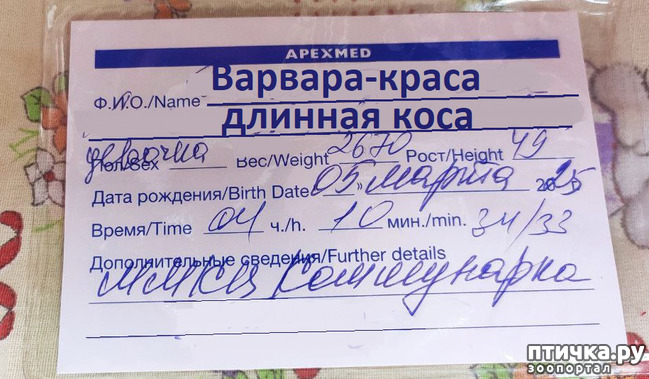 APEXMED
Ф.И.О./Name Варвара-краса
длинная коса
Пол/Sex девочка Вес/Weight 2670 Рост/Height 49
Дата рождения/Birth Date "05" марта 2025
Время/Time 04 ч./h. 10 мин./min. 34/33
Дополнительные сведения/Further details
ММКЦ Коммунарка
птичка.ру
зоопортал